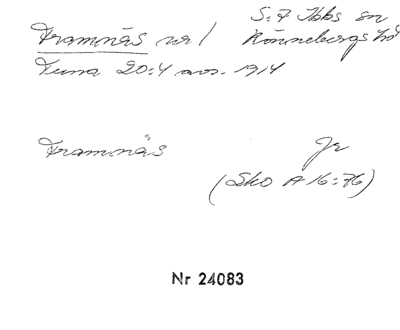 Framnäs nr 1
S:t Ibbs sn
Rönnebergs hd
Tuna 20:4 avs. 1914
Framnäs
Jr
(Sko A 16:76)
Nr 24083